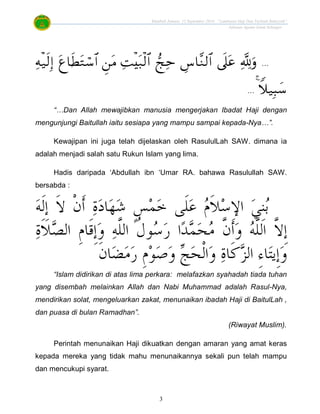 Khutbah Jumaat 11 September 2016: "Labbaika Haji Dan Korban Bersyiar"
Jabatan Agama Islam Selangor
... وَلِلَّهِ عَلَى ٱلنَّاسِ حِجُّ ٱلْبَيْتِ مَنِ ٱسْتَطَاعَ إِلَيْهِ
سَبِيلًا ۚ ...
"…Dan Allah mewajibkan manusia mengerjakan Ibadat Haji dengan
mengunjungi Baitullah iaitu sesiapa yang mampu sampai kepada-Nya…".
Kewajipan ini juga telah dijelaskan oleh RasululLah SAW. dimana ia
adalah menjadi salah satu Rukun Islam yang lima.
Hadis daripada 'Abdullah ibn 'Umar RA. bahawa Rasulullah SAW.
bersabda :
بُنِيَ الإِسْلَامُ عَلَى خَمْسٍ شَهَادَةِ أَنْ لَا إِلَهَ
إِلَّا اللَّهُ وَأَنَّ مُحَمَّدًا رَسُولُ اللَّهِ وَإِقَامِ الصَّلَاةِ
وَإِيتَاءِ الزَّكَاةِ وَالْحَجِّ وَصَوْمِ رَمَضَانَ
"Islam didirikan di atas lima perkara: melafazkan syahadah tiada tuhan
yang disembah melainkan Allah dan Nabi Muhammad adalah Rasul-Nya,
mendirikan solat, mengeluarkan zakat, menunaikan ibadah Haji di BaitulLah ,
dan puasa di bulan Ramadhan".
(Riwayat Muslim).
Perintah menunaikan Haji dikuatkan dengan amaran yang amat keras
kepada mereka yang tidak mahu menunaikannya sekali pun telah mampu
dan mencukupi syarat.
3